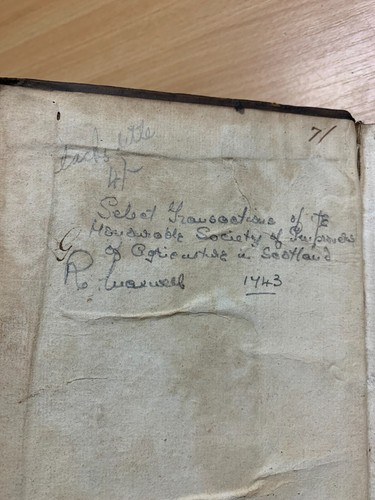 7/
lacks title
4/-
Select Transactions of Ye
Honourable Society of Improvers
of Agriculture in Scotland
R. Maxwell 1743